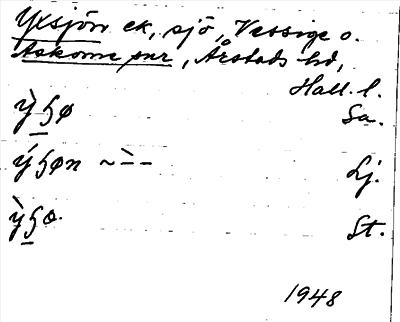 Yxsjön ek, sjö, Vessige o.
Askome snr, Årstads hd,
Hall. l.
ỳ ɧø Sa.
ý ɧøn ~ `– – Lj.
ỳ ɧə. St.
1948